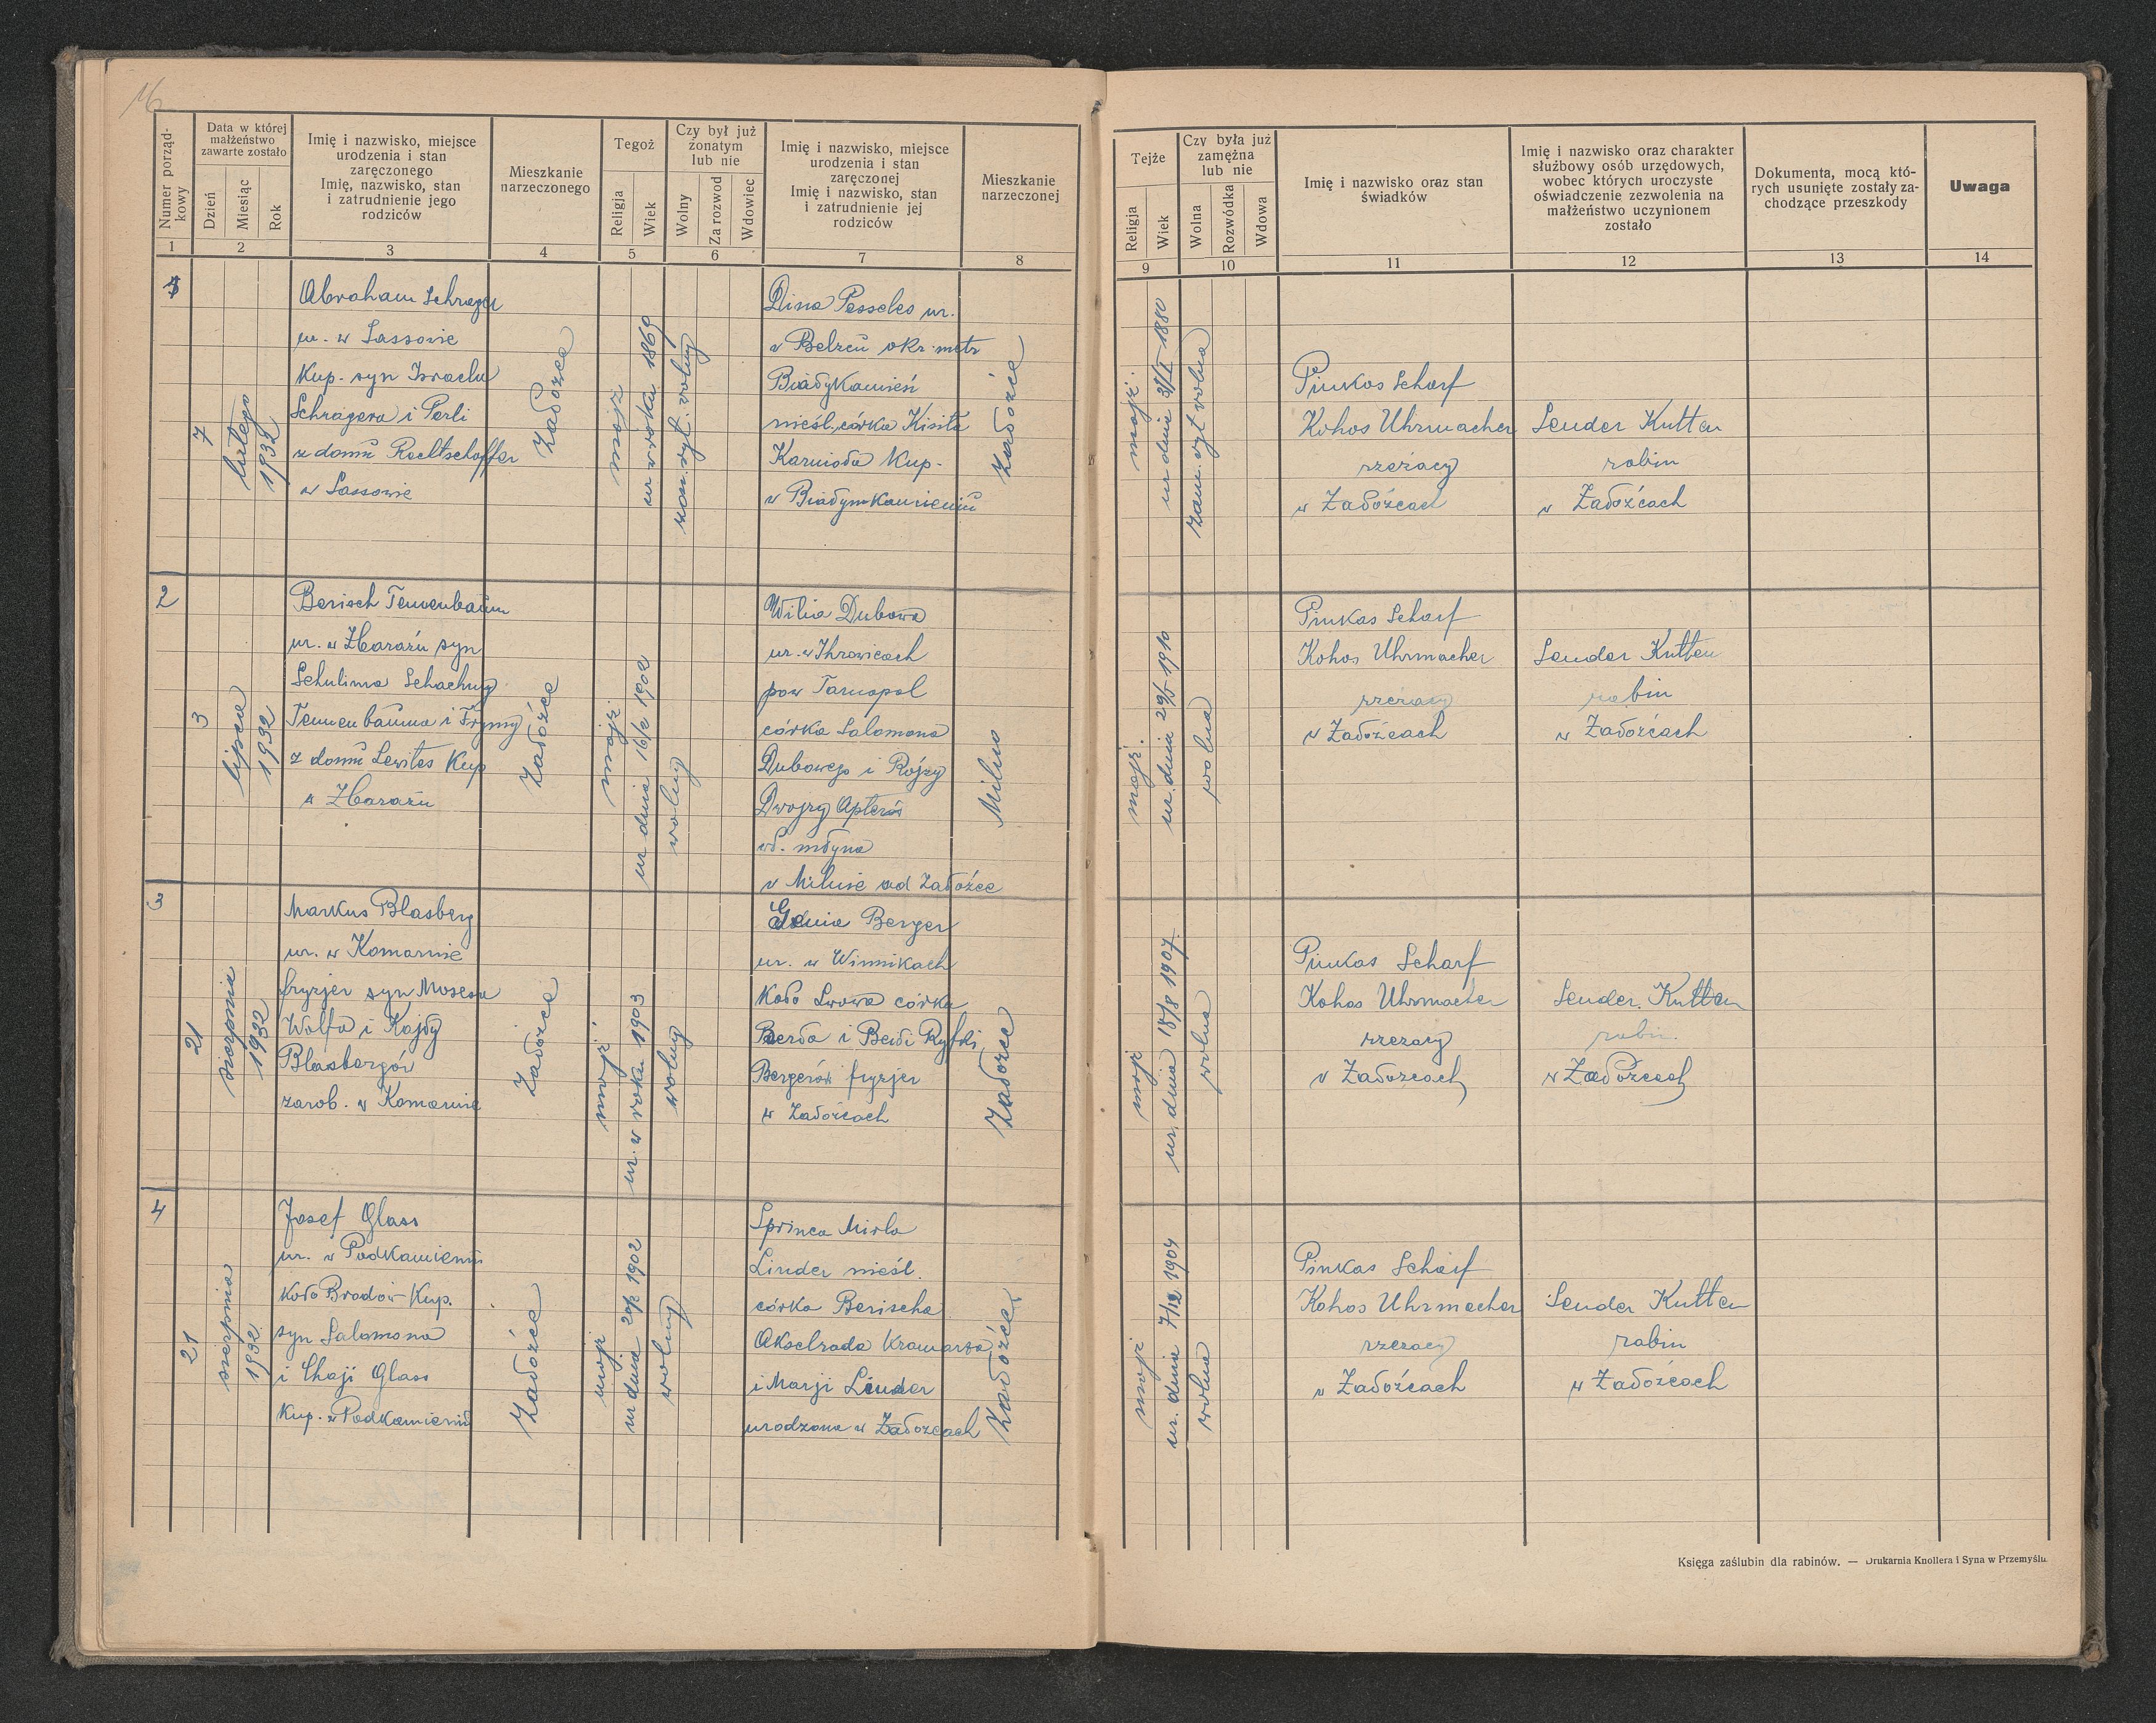 16
Numer porządkowy
Data w której małżeństwo zawarte zostało
Dzień
Miesiąc
Rok
Imię i nazwisko, miejsce
urodzenia i stan
zaręczonego
Imię, nazwisko, stan
i zatrudnienie jego
rodziców
Mieszkanie
narzeczonego
Tegoż
Religja
Wiek
Czy był już
żonatym
lub nie
Wolny
Za rozwod
Wdowiec
Imię i nazwisko, miejsce
urodzenia i stan
zaręczonej
Imię i nazwisko, stan
i zatrudnienie jej
rodziców
Mieszkanie
narzeczonej
Tejże
Religja
Wiek
Czy była już
zamężna
lub nie
Wolna
Rozwódka
Wdowa
Imię i nazwisko oraz stan
świadków
Imię i nazwisko oraz charakter
służbowy osób urzędowych,
wobec których uroczyste
oświadczenie zezwolenia na
małżeństwo uczynionem
zostało
Dokumenta, mocą któ-
rych usunięte zostały za-
chodzące przeszkody
Uwaga
1 2 3 4 5 6 7 8 9 10 11 12 13 14
1
7
lutego
1932
Abraham Schrager
ur. w Sassowie
Kup. syn Israela
Schragera i Perli
z domu Rechtschaffer
w Sassowie
Załoźce
mojż
ur w roku 1869
żon. ryt. wolny
Dina Pesseles ur.
w Bełzcu okr. metr
Biały Kamień
nieśl. córka Kisita
Karnioła Kup.
w Białymkamieniu
Załoźce
mojż.
ur dnia 31/I 1880
zam. ryt wolna
Pinkas Scharf
Kohos Uhrmacher
rzezacy
w Załoźcach
Sender Kutten
rabin
w Załoźcach
2
3
lipca
1932
Berisch Tennenbaum
ur. w Zbarażu syn
Schulima Schachny
Tennenbauma i Frymy
z domu Lewites Kup
w Zbarażu
Załoźce
mojż.
ur dnia 16/2 1902
wolny
Wilia Dubowa
ur. w Ihrowicach
pow Tarnopol
córka Salamona
Dubowego i Rójzy
Dwojry Apterów
wł. młyna
w Milnie ad Załoźce
Milno
mojż.
ur. dnia 29/5 1910
wolna
Pinkas Scharf
Kohos Uhrmacher
rzezacy
w Załoźcach
Sender Kutten
rabin
w Załoźcach
3
21
sierpnia
1932
Markus Blasberg
ur. w Komarnie
fryzjer syn Mosesa
Wolfa i Kajdy
Blasbergów
zarob. w Komarnie
Załoźce
mojż
ur. w roku 1903
wolny
Genia Berger
ur. w Winnikach
Koło Lwowa córka
Berła i Beili Ryfki
Bergerów fryzjer
w Załoźcach
Załozce
mojż
ur. dnia 18/8 1907.
wolna
Pinkas Scharf
Kohos Uhrmacher
rzezacy
w Załozcach
Sender. Kutten
rabin.
w Załozcach
4
21
sierpnia
1932.
Josef Glass
ur. w Podkamieniu
koło Brodów Kup.
syn Salamona
i Chaji Glass
Kup. w Podkamieniu
Załoźce
mojż
ur dnia 20/2 1902
wolny
Sprinca Mirla
Linder nieśl.
córka Berischa
Akselrada Kramarza
i Marji Linder
urodzona w Załozcach
Załoźce
mojż
ur. dnia 7/12 1904
wolna
Pinkas Scharf
Kohos Uhrmacher
rzezacy
w Załoźcach
Sender Kutten
rabin
w Załoźcach
Księga zaślubin dla rabinów. — Drukarnia Knollera i Syna w Przemyślu.